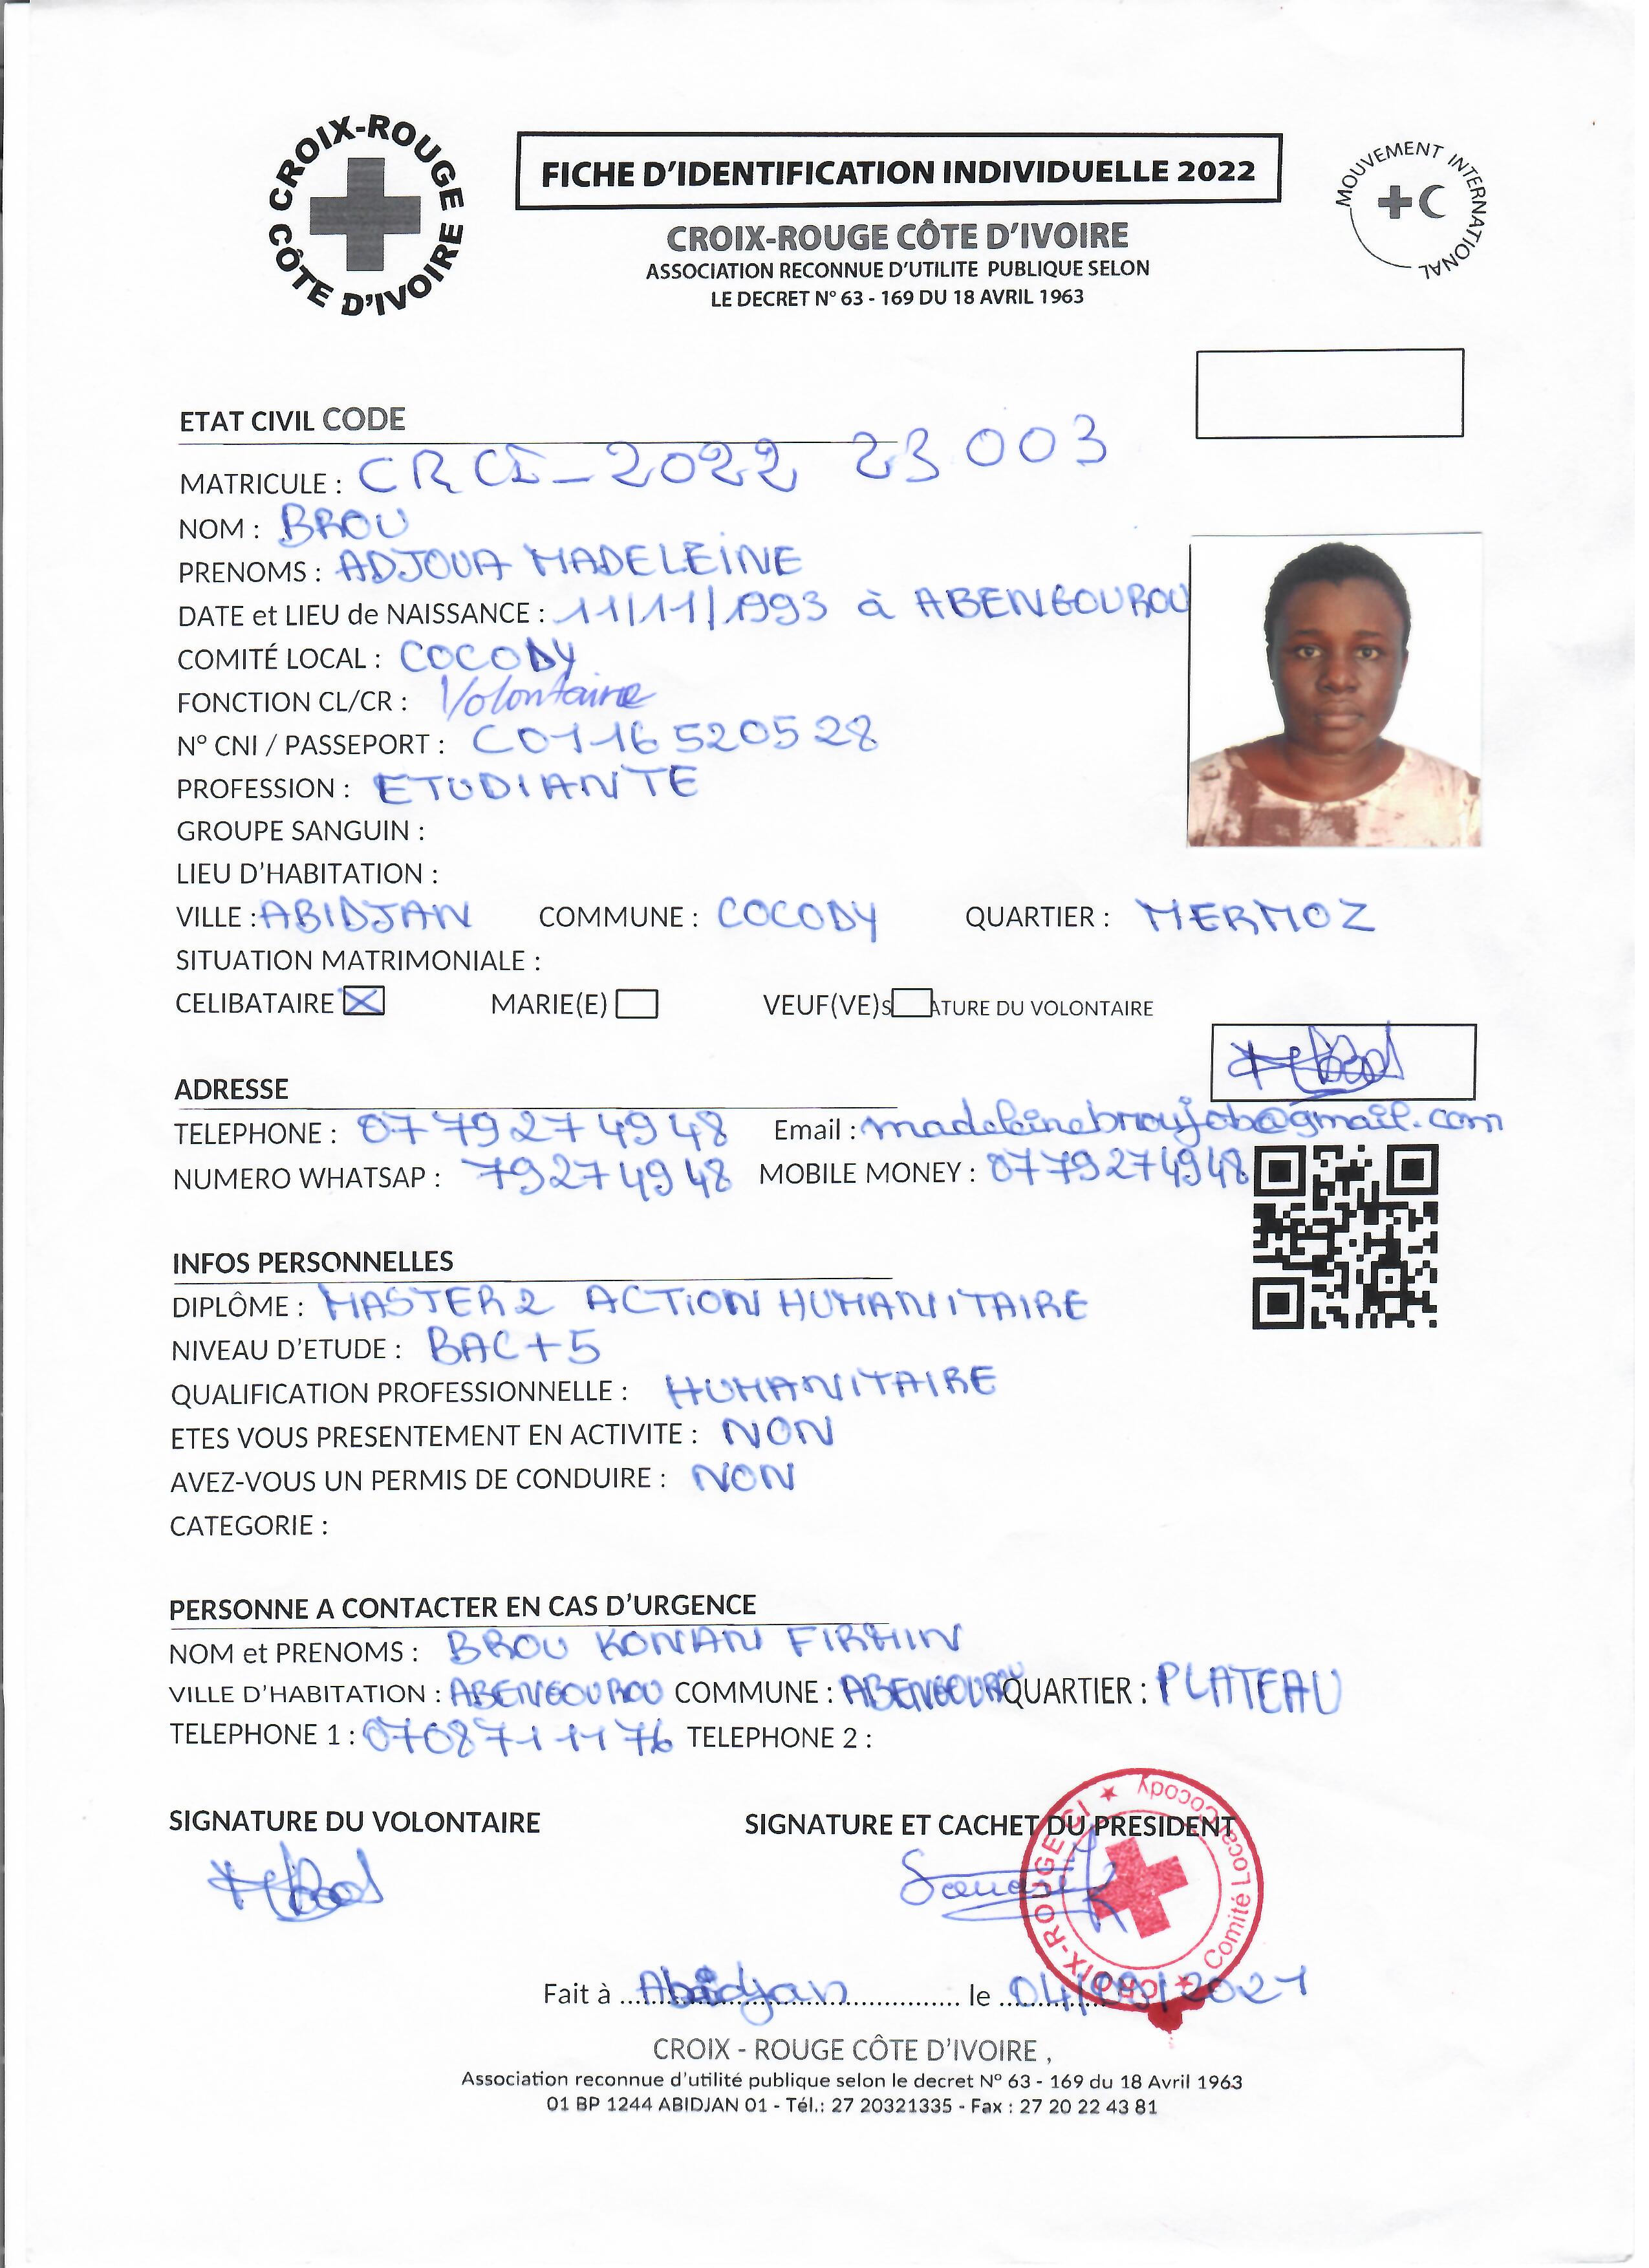 CROIX-ROUGE CÔTE D'IVOIRE
FICHE D'IDENTIFICATION INDIVIDUELLE 2022
MOUVEMENT INTERNATIONAL
CROIX-ROUGE CÔTE D'IVOIRE
ASSOCIATION RECONNUE D'UTILITE PUBLIQUE SELON
LE DECRET N° 63 - 169 DU 18 AVRIL 1963
ETAT CIVIL CODE
MATRICULE : CRCI_2022 23 003
NOM : BROU
PRENOMS : ADJOUA MADELEINE
DATE et LIEU de NAISSANCE : 11/11/1993 à ABENGOUROU
COMITÉ LOCAL : COCODY
FONCTION CL/CR : Volontaire
N° CNI / PASSEPORT : C01116520528
PROFESSION : ETUDIANTE
GROUPE SANGUIN :
LIEU D'HABITATION :
VILLE : ABIDJAN COMMUNE : COCODY QUARTIER : MERMOZ
SITUATION MATRIMONIALE :
CELIBATAIRE MARIE(E) VEUF(VE) S ATURE DU VOLONTAIRE
ADRESSE
TELEPHONE : 0779274948 Email : madeleinebroujob@gmail.com
NUMERO WHATSAP : 79274948 MOBILE MONEY : 0779274948
INFOS PERSONNELLES
DIPLÔME : MASTER 2 ACTION HUMANITAIRE
NIVEAU D'ETUDE : BAC+5
QUALIFICATION PROFESSIONNELLE : HUMANITAIRE
ETES VOUS PRESENTEMENT EN ACTIVITE : NON
AVEZ-VOUS UN PERMIS DE CONDUIRE : NON
CATEGORIE :
PERSONNE A CONTACTER EN CAS D'URGENCE
NOM et PRENOMS : BROU KONAN FIRMIN
VILLE D'HABITATION : ABENGOUROU COMMUNE : ABENGOUROU QUARTIER : PLATEAU
TELEPHONE 1 : 0708711176 TELEPHONE 2 :
SIGNATURE DU VOLONTAIRE SIGNATURE ET CACHET DU PRESIDENT
CROIX-ROUGE CI ★ Comité Local Cocody ★
Fait à Abidjan le 04/09/2021
CROIX - ROUGE CÔTE D'IVOIRE ,
Association reconnue d'utilité publique selon le decret N° 63 - 169 du 18 Avril 1963
01 BP 1244 ABIDJAN 01 - Tél.: 27 20321335 - Fax : 27 20 22 43 81